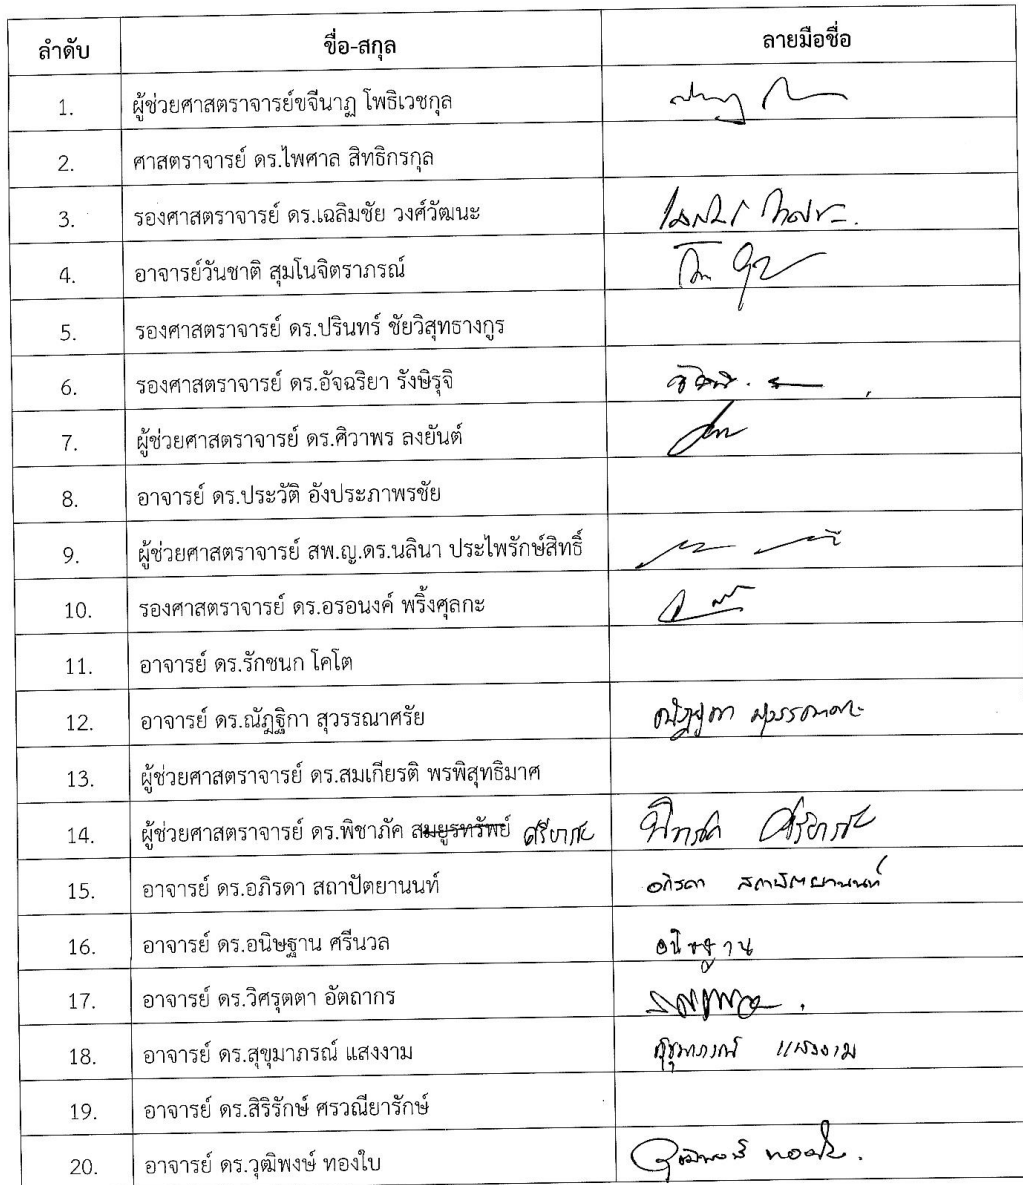 ลำดับ ชื่อ-สกุล ลายมือชื่อ
1. ผู้ช่วยศาสตราจารย์ขจีนาฏ โพธิเวชกุล
2. ศาสตราจารย์ ดร.ไพศาล สิทธิกรกุล
3. รองศาสตราจารย์ ดร.เฉลิมชัย วงศ์วัฒนะ
4. อาจารย์วันชาติ สุมโนจิตราภรณ์
5. รองศาสตราจารย์ ดร.ปรินทร์ ชัยวิสุทธางกูร
6. รองศาสตราจารย์ ดร.อัจฉริยา รังษิรุจิ
7. ผู้ช่วยศาสตราจารย์ ดร.ศิวาพร ลงยันต์
8. อาจารย์ ดร.ประวัติ อังประภาพรชัย
9. ผู้ช่วยศาสตราจารย์ สพ.ญ.ดร.นลินา ประไพรักษ์สิทธิ์
10. รองศาสตราจารย์ ดร.อรอนงค์ พริ้งศุลกะ
11. อาจารย์ ดร.รักชนก โคโต
12. อาจารย์ ดร.ณัฏฐิกา สุวรรณาศรัย
13. ผู้ช่วยศาสตราจารย์ ดร.สมเกียรติ พรพิสุทธิมาศ
14. ผู้ช่วยศาสตราจารย์ ดร.พิชาภัค สมยูรทรัพย์
15. อาจารย์ ดร.อภิรดา สถาปัตยานนท์ อภิรดา สถาปัตยานนท์
16. อาจารย์ ดร.อนิษฐาน ศรีนวล อนิษฐาน
17. อาจารย์ ดร.วิศรุตตา อัตถากร
18. อาจารย์ ดร.สุขุมาภรณ์ แสงงาม สุขุมาภรณ์ แสงงาม
19. อาจารย์ ดร.สิริรักษ์ ศรวณียารักษ์
20. อาจารย์ ดร.วุฒิพงษ์ ทองใบ